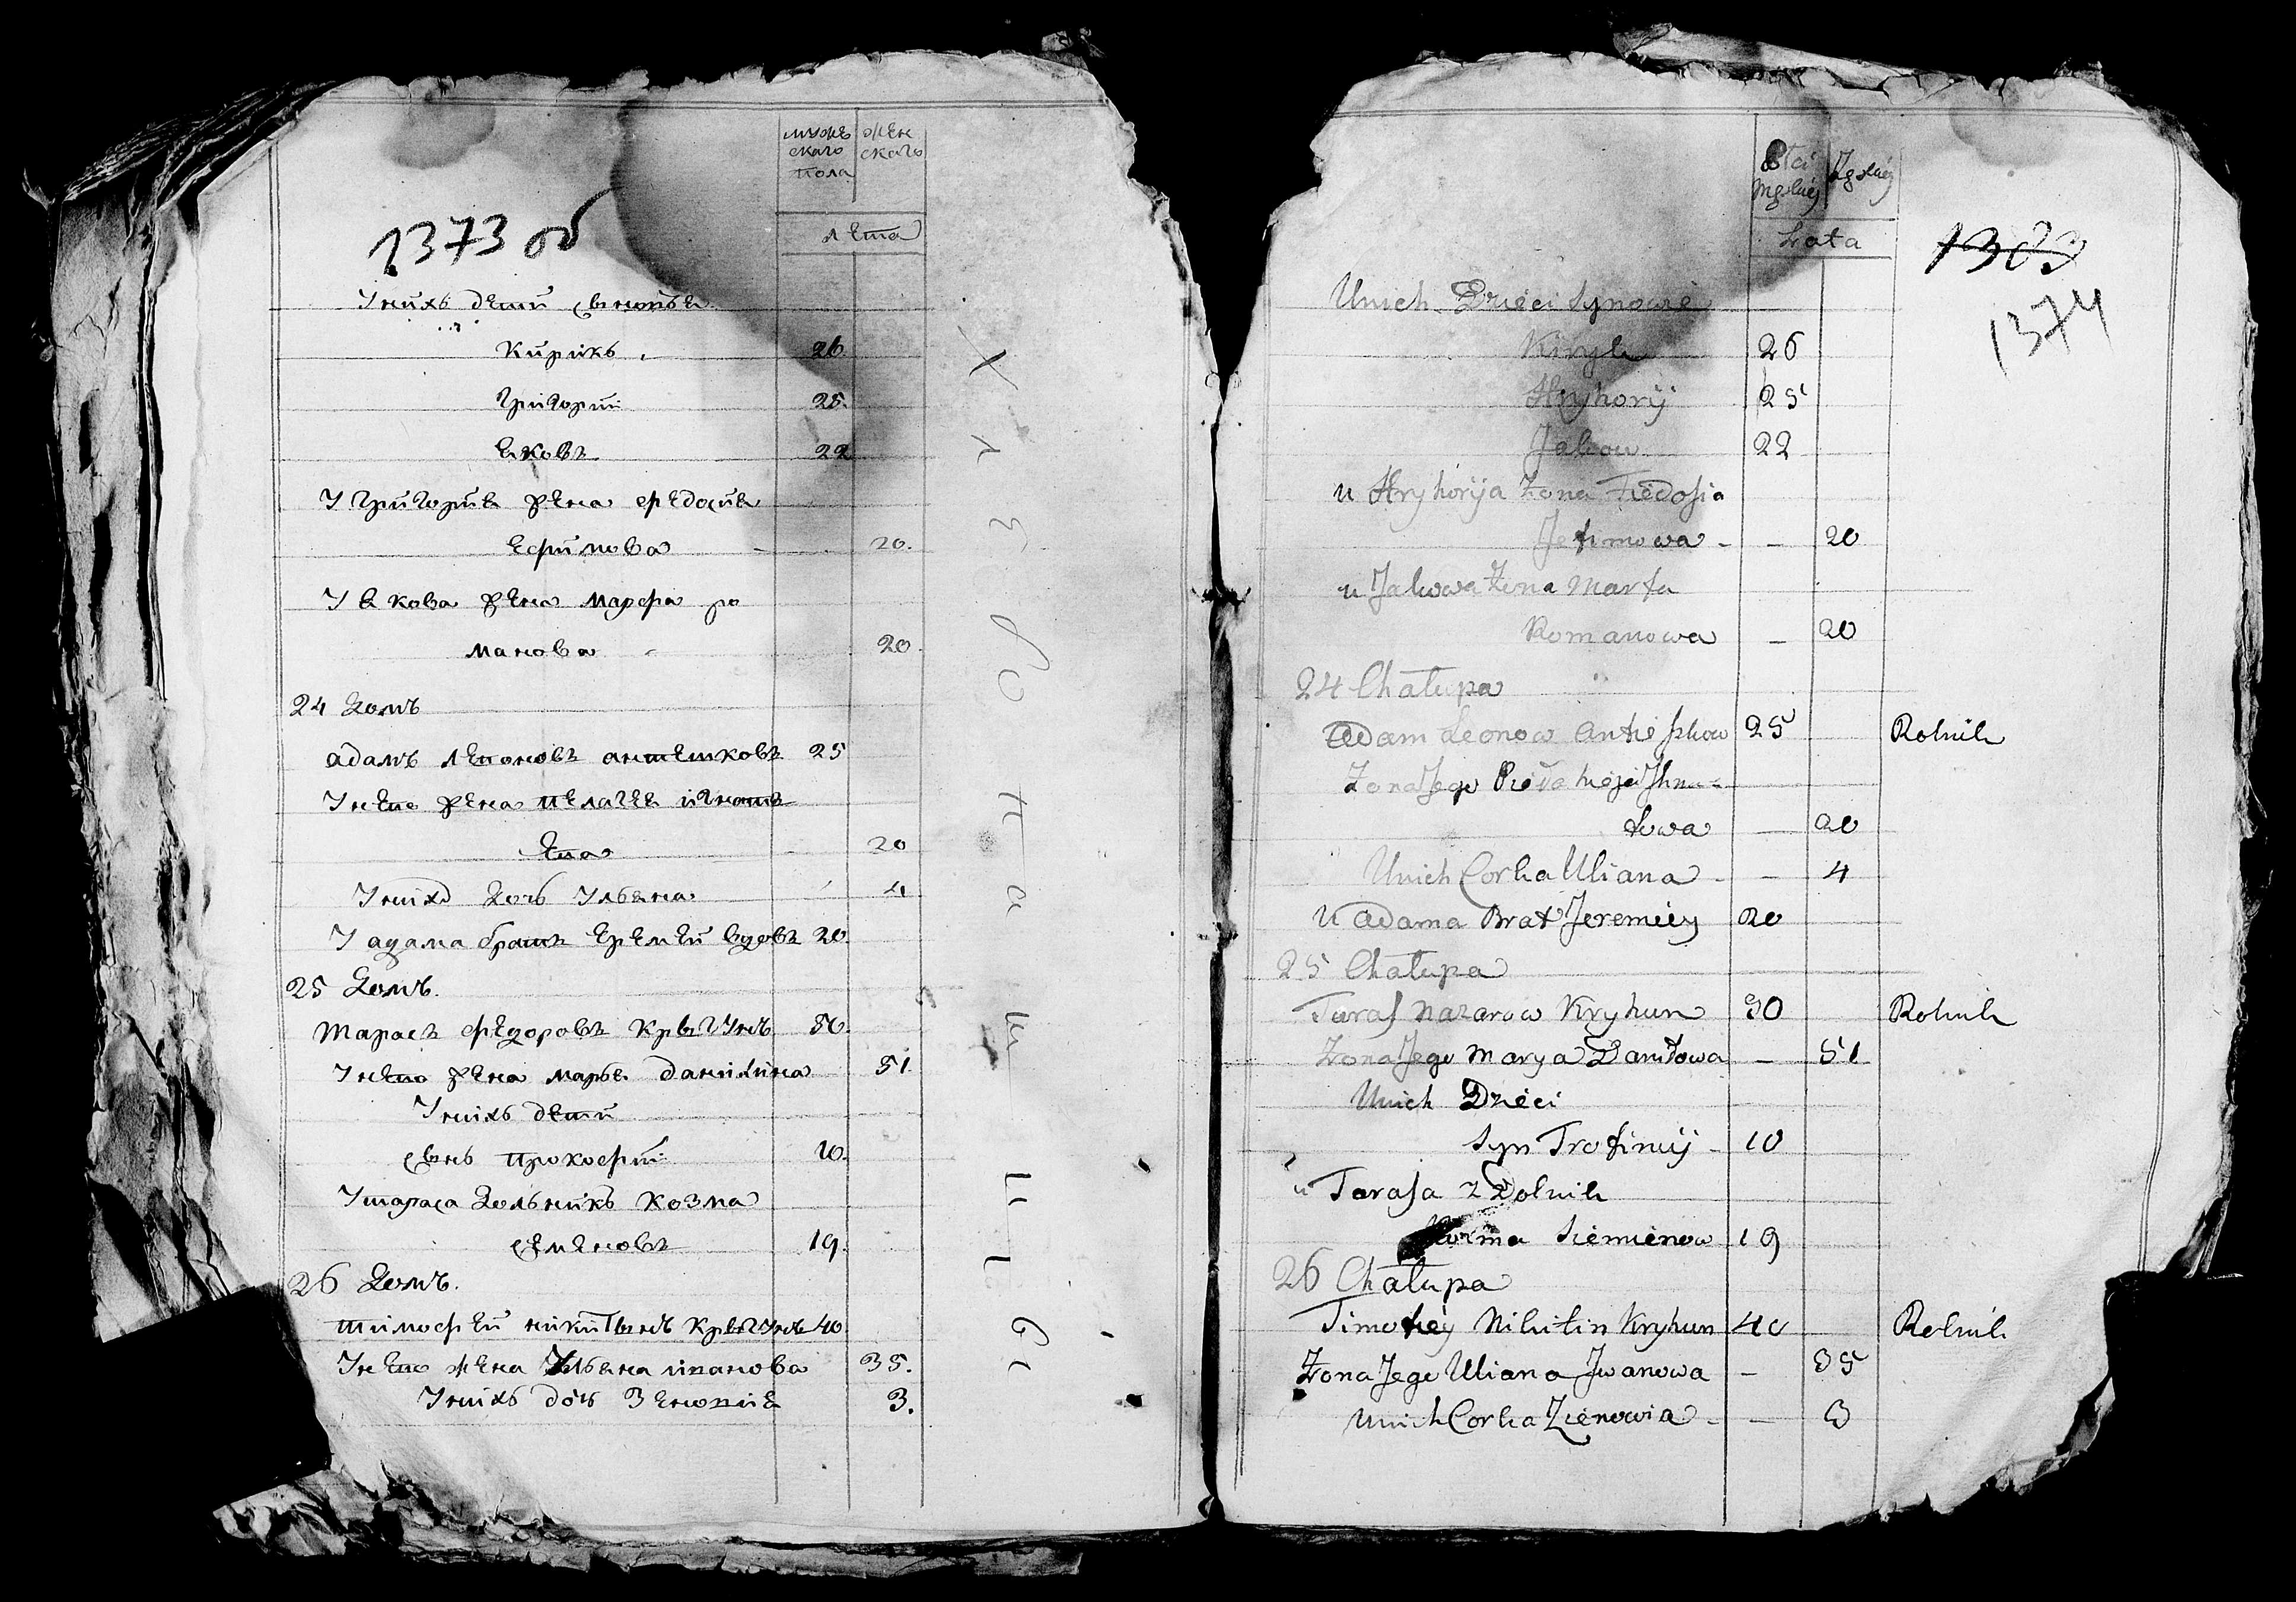 мужъ
скаго
пола
жен
скаго
лета
1373 об
У нихъ дети сыновья
Кирикъ 26
Григорий 25.
Яковъ 22
У Григория жена Федосия
Ефимова 20.
У Якова жена Марфа Ро
манова 20.
24 домъ
Адамъ Леоновъ Антешковъ 25
У него жена Пелагея Игнать
ева 20
У нихъ дочь Ульяна 4
У Адама братъ Еремей вдовъ 20.
25 домъ.
Тарасъ Федоровъ Крыгунъ 50.
У него жена Марья Данилина 51.
У нихъ дети
сынъ Прокофий 10.
У Тараса дольникъ Козма
Семеновъ 19.
26 домъ.
Тимофей Никитинъ Крыгунъ 40
У него жена Ульяна Иванова 35.
У нихъ дочь Зеновия 3.
Х л е б о п а ш ц ы
Płci
Lata
1383
1374
U nich Dzieci Synowie
Kiryk 26
Hryhorij 25
Jakow 22
u Hryhorija Żona Fiedosia
Jefimowa - - 20
u Jakowa Żona Marfa
Romanowa - 20
24 Chałupa
Adam Leonow Antieszkow 25 Rolnik
Żona Jego Ihna=
towa - 20
U nich Corka Uliana - - 4
u Adama Brat Jeremiey 20
25 Chałupa
Taras Nazarow Kryhun 50 Rolnik
Żona Jego Marya Daniłowa - 51
U nich Dzieci
Syn Trofimij - 10
u Tarasa z Dolnik
Kozma Siemienow 19
26 Chałupa
Timofiey Nikitin Kryhun 40 Rolnik
Żona Jego Uliana Iwanowa - 35
U nich Corka Zienowia - - 3